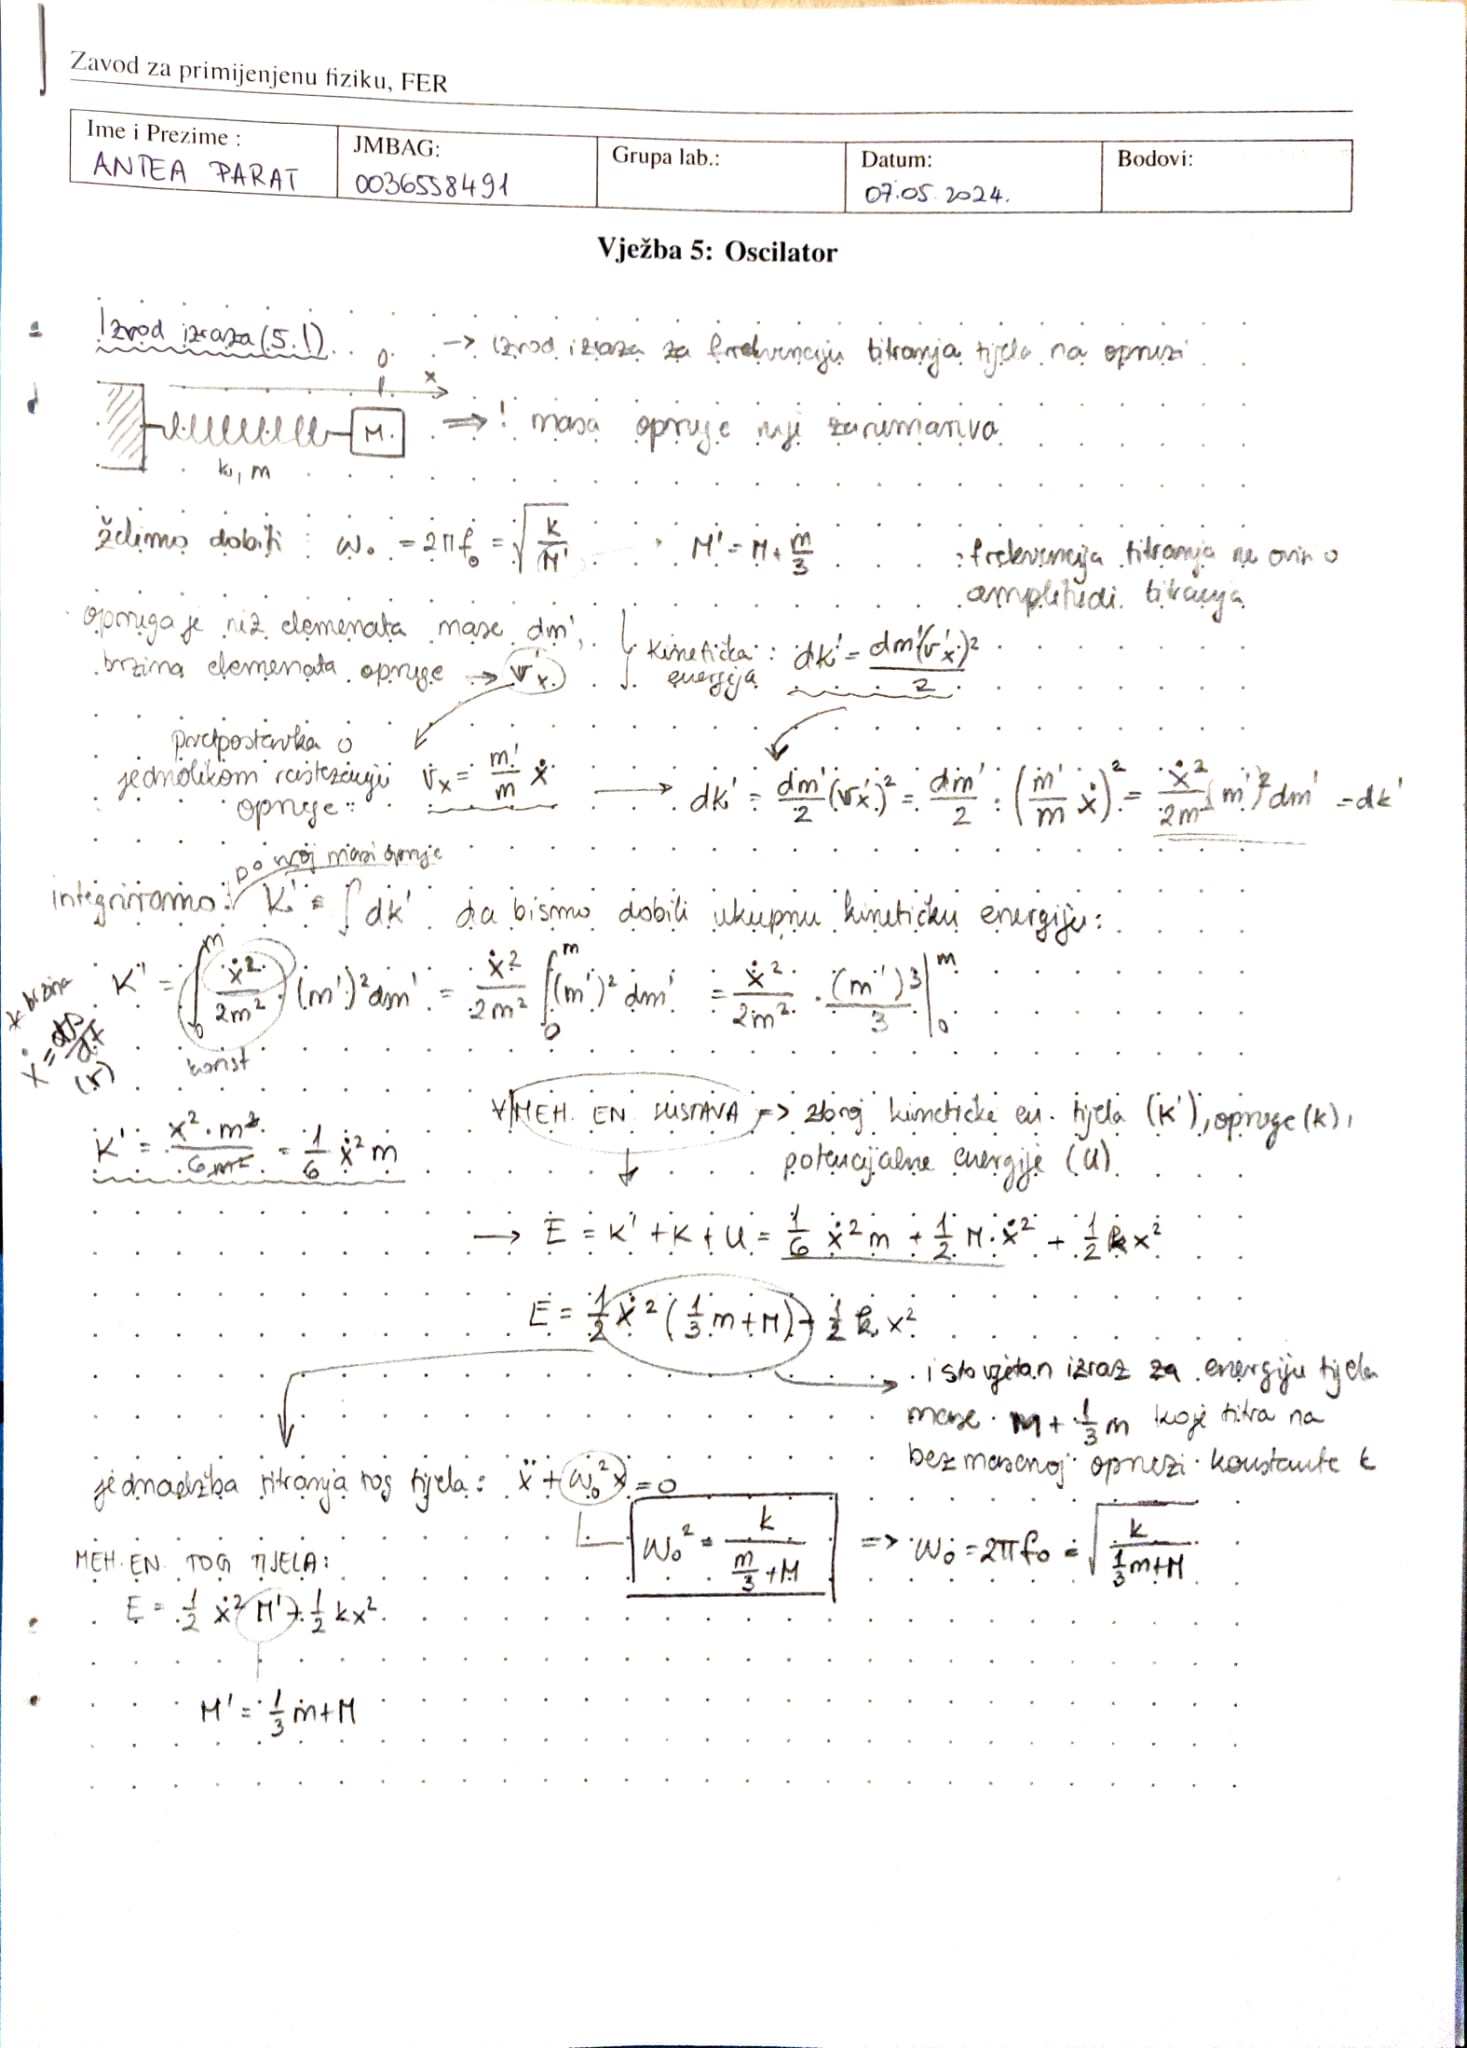 Zavod za primijenjenu fiziku, FER
Ime i Prezime :
ANTEA PARAT
JMBAG:
0036558491
Grupa lab.:
Datum:
07.05.2024.
Bodovi:
Vježba 5: Oscilator
Izvod izraza (5.1)
→ izvod izraza za frekvenciju titranja tijela na opruzi
0
x
M
k, m
⇒ ! masa opruge nije zanemariva
želimo dobiti : ω₀ = 2πf₀ = √(k/M')
M' = M + m/3
: frekvencija titranja ne ovisi o
amplitudi titranja
opruga je niz elemenata mase dm',
brzina elemenata opruge → v'x
kinetička : dK' = dm'(v'x)²/2
energija
pretpostavka o
jednolikom rastezanju
opruge :
vx = m'/m ẋ → dK' = dm'/2 (v'x)² = dm'/2 · (m'/m ẋ)² = ẋ²/2m² (m')² dm' = dK'
po svoj masi opruge
integriramo: K' = ∫ dK' da bismo dobili ukupnu kinetičku energiju:
K' = ∫₀ᵐ ẋ²/2m² · (m')² dm' = ẋ²/2m² ∫₀ᵐ (m')² dm' = ẋ²/2m² · (m')³/3 |₀ᵐ
* brzina
konst
K' = ẋ²·m³/6m² = 1/6 ẋ² m
* MEH. EN. SUSTAVA → zbroj kinetičke en. tijela (K'), opruge (K),
potencijalne energije (U)
→ E = K' + K + U = 1/6 ẋ² m + 1/2 M·ẋ² + 1/2 k x²
E = 1/2 ẋ² (1/3 m + M) + 1/2 k x²
istovjetan izraz za energiju tijela
mase M + 1/3 m koje titra na
bezmasenoj opruzi konstante k
jednadžba titranja tog tijela : ẍ + ω₀² x = 0
ω₀² = k/(m/3 + M) ⇒ ω₀ = 2πf₀ = √(k/(1/3 m + M))
MEH. EN. TOG TIJELA:
E = 1/2 ẋ² M' + 1/2 kx²
M' = 1/3 m + M